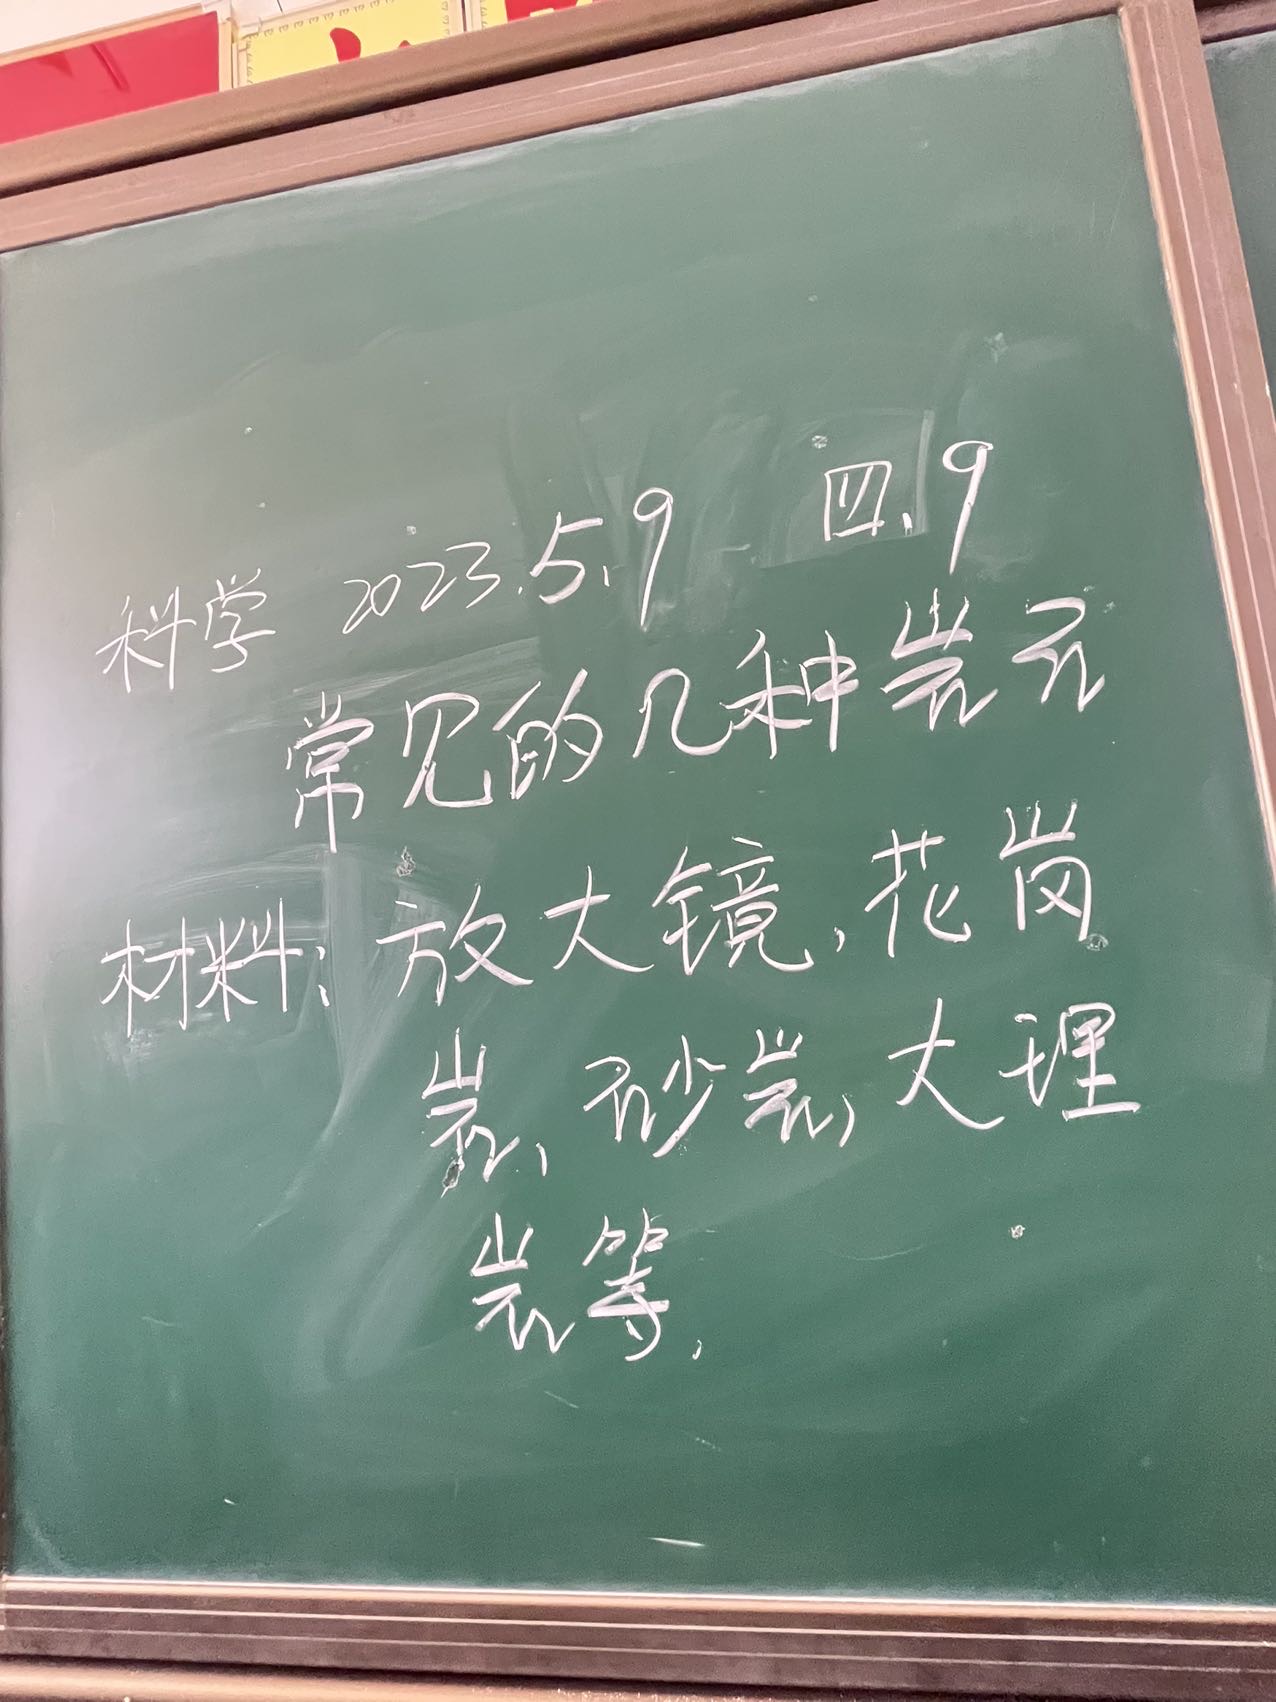 科学 2023.5.9 四.9
常见的几种岩石
材料:放大镜,花岗
岩、砂岩,大理
岩等.